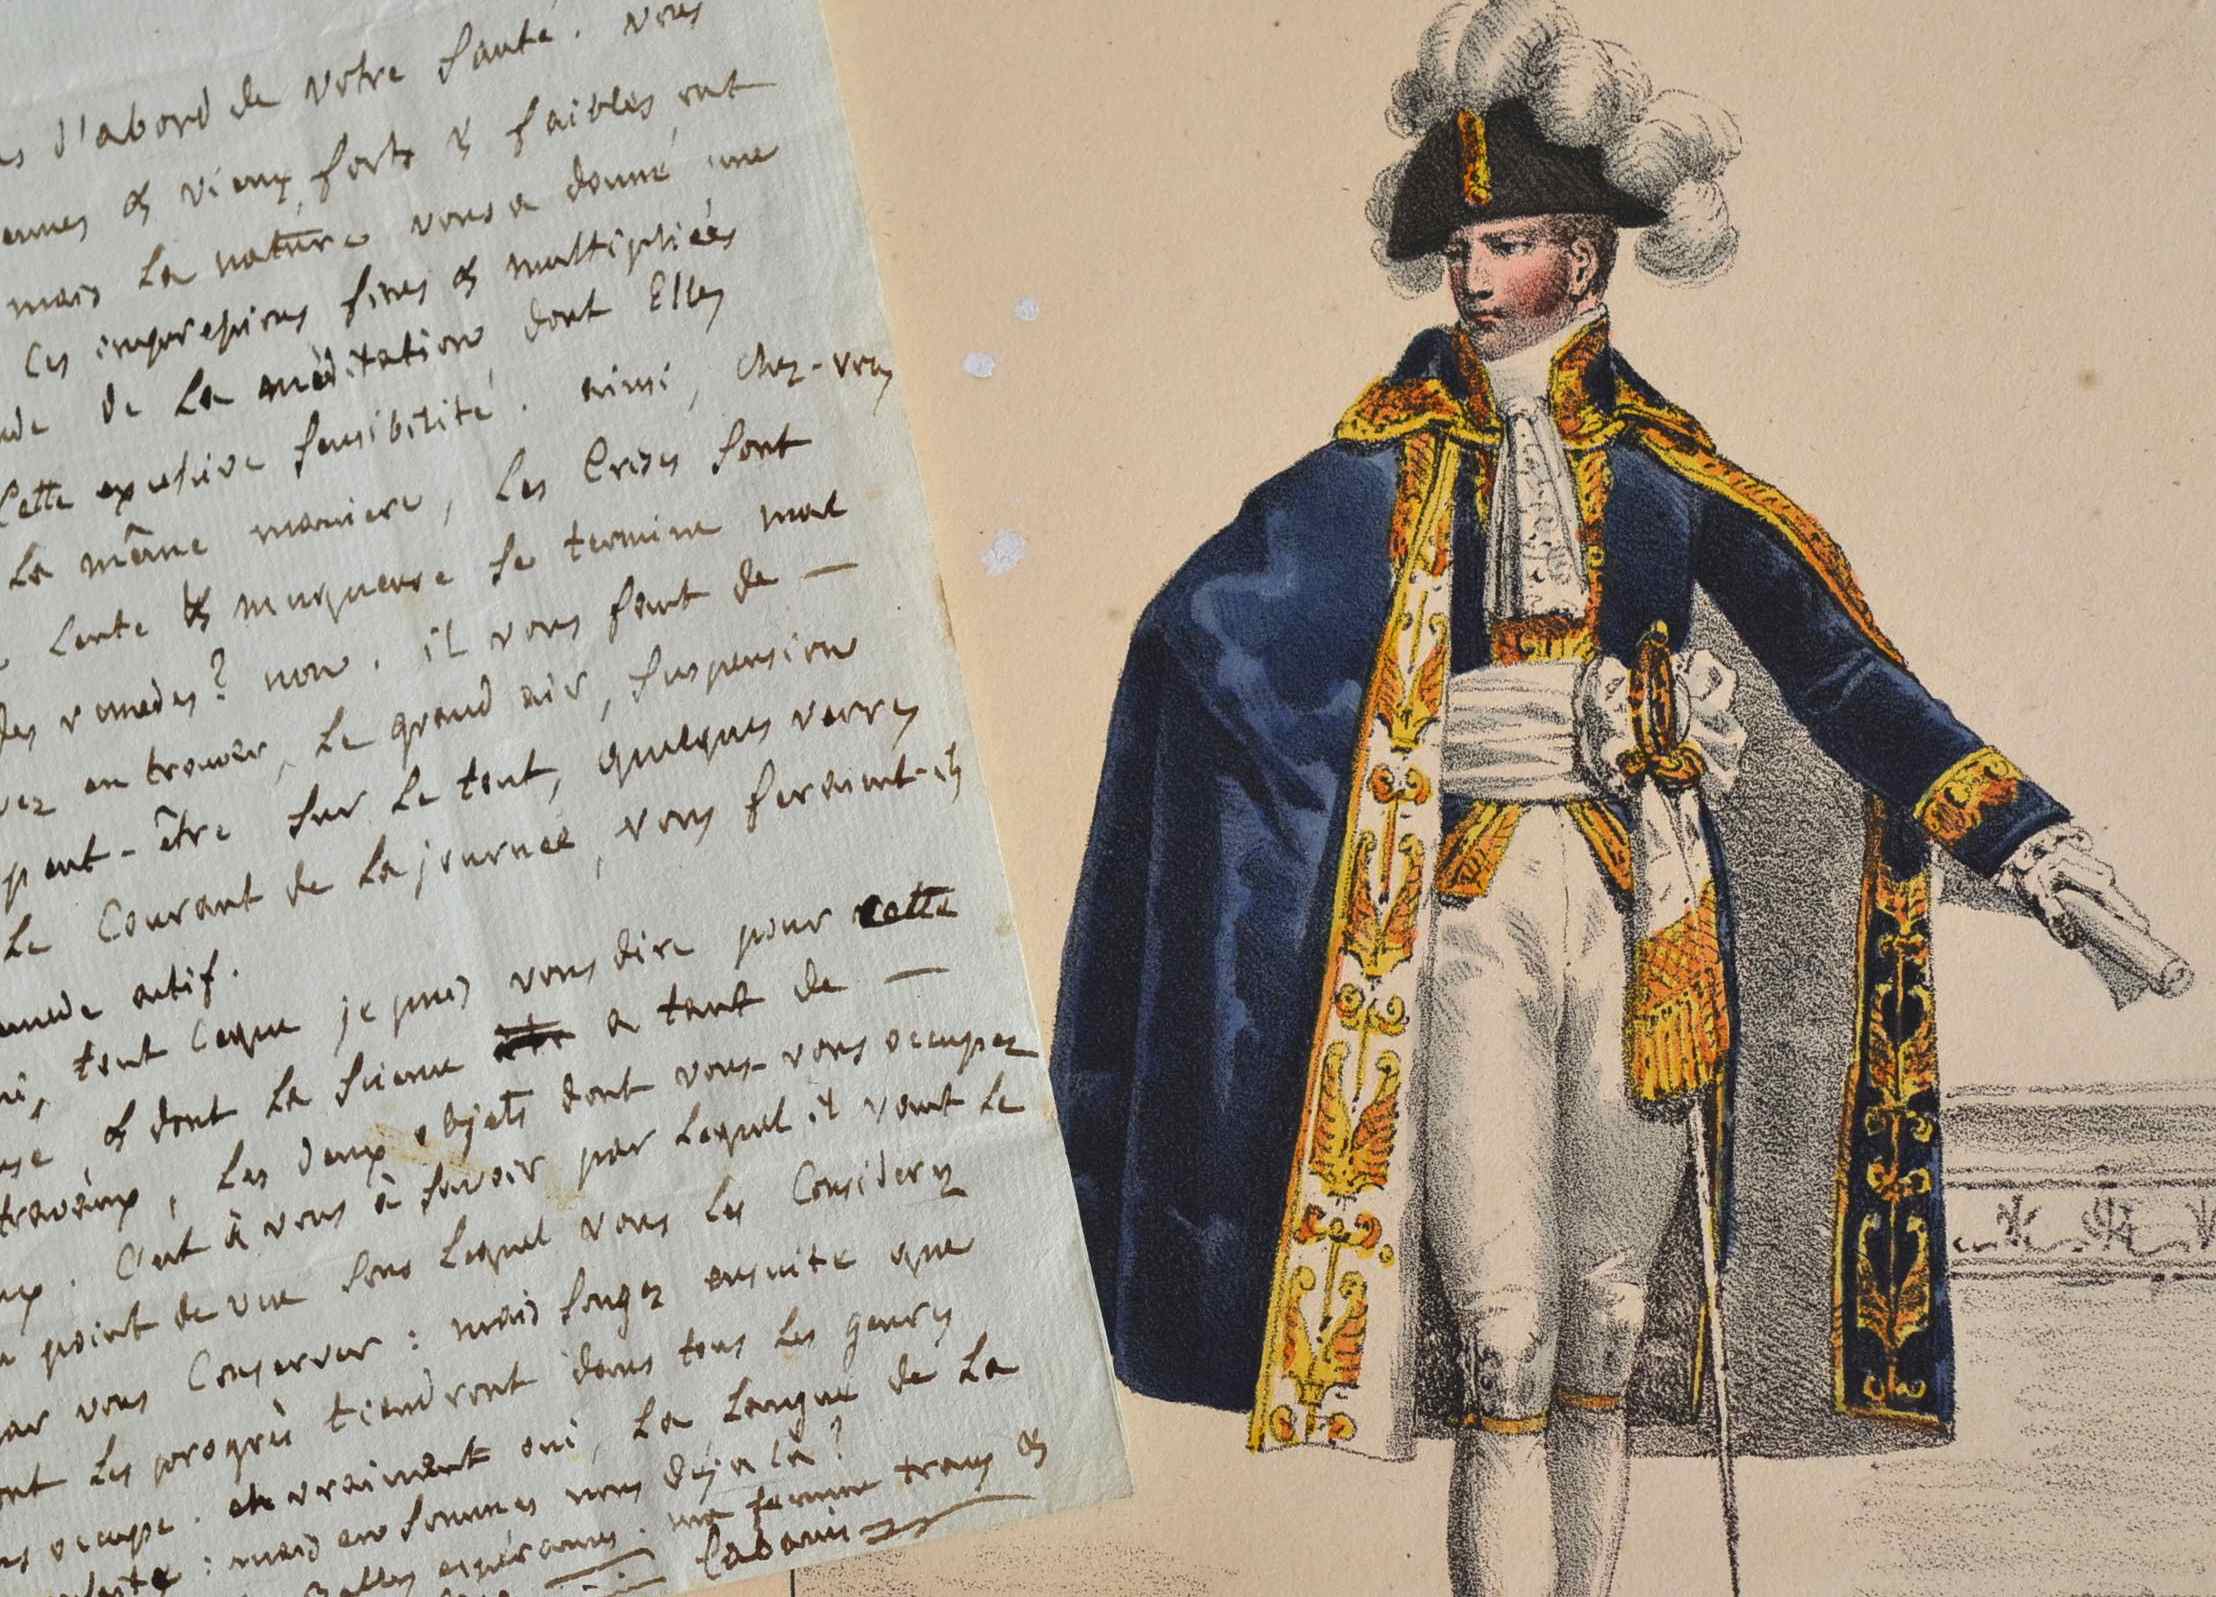 d'abord de votre santé. vous
& vieux, forts & faibles, ont
mais la nature vous a donné une
Ces impressions fines & multipliées
de la méditation, dont Elles
Cette excessive sensibilité. ainsi, chez-vous
La même maniere, les Crises sont
lente & muqueuse se termine mal
des remedes? non. il vous faut de —
en trouver, le grand air, suspension
peut-être sur le tout, quelques verres
le Courant de la journée, vous feraient-ils
actif.
tout ceque je puis vous dire pour cette
& dont la science a tant de —
travaux, les deux objets dont vous-vous occupez
C'est à vous à savoir par lequel il vaut le
point de vue sous lequel vous les Considerez
vous Conserver: mais songez ensuite que
les progrès tiendront dans tous les genres
occupe. eh vraiment oui, la langue de la
: mais en sommes nous dejà là?
Belles espérances. ma femme &
Cabanis